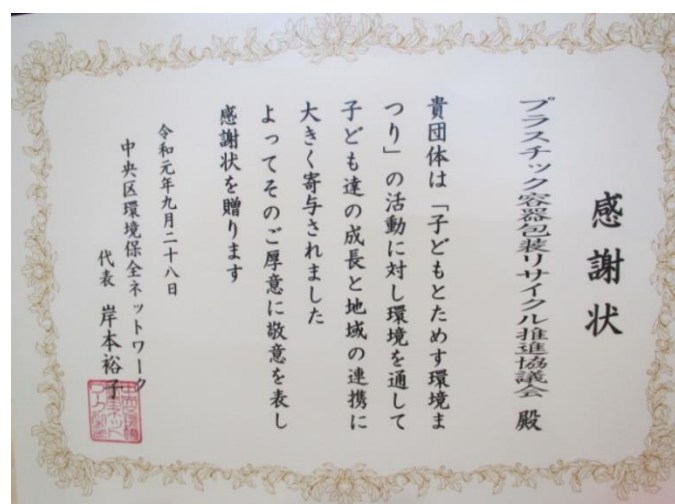 感謝状
プラスチック容器包装リサイクル推進協議会 殿
貴団体は「子どもとためす環境ま
つり」の活動に対し環境を通して
子ども達の成長と地域の連携に
大きく寄与されました
よってそのご厚意に敬意を表し
感謝状を贈ります
令和元年九月二十八日
中央区環境保全ネットワーク
代表 岸本裕子